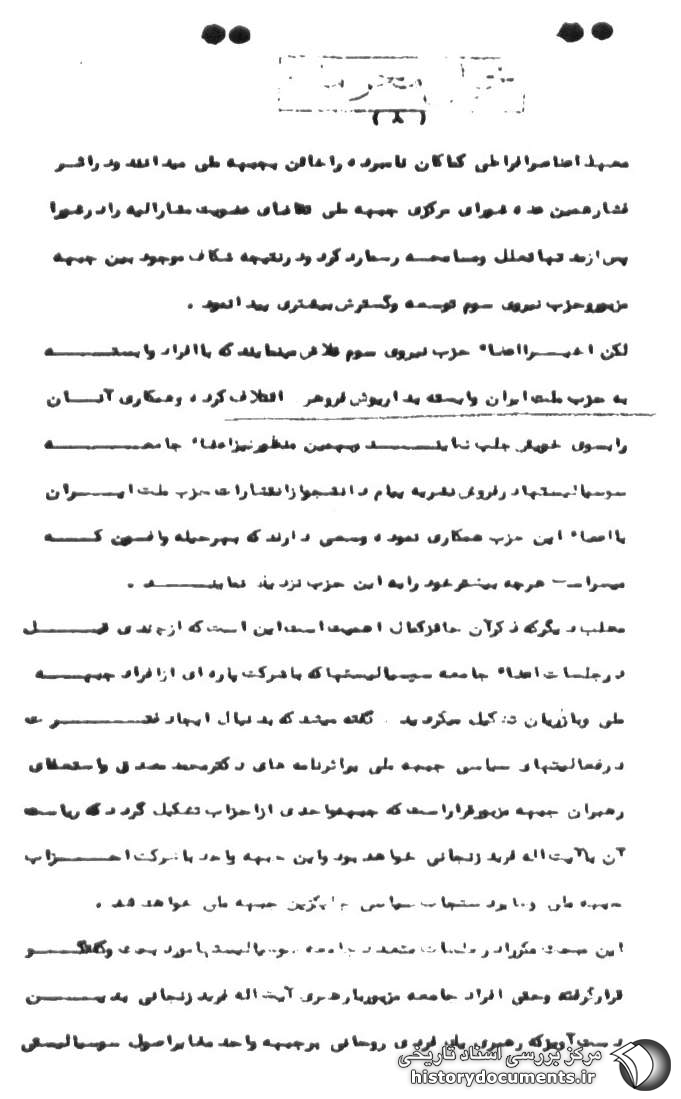 (٨)
معهذا عناصر افراطی کماکان نامبرده را خائن بجبهه ملی میدانند و در اثر
فشار همین عده شورای مرکزی جبهه ملی تقاضای عضویت مشارالیه را در شورا
پس از مدتها تعلل و مسامحه رسما رد کرد و در نتیجه شکاف موجود بین جبهه
مزبور و حزب نیروی سوم توسعه و گسترش بیشتری پیدا نمود .
لکن اخیرا اعضاء حزب نیروی سوم تلاش مینمایند که با افراد وابسته
به حزب ملت ایران وابسته بداریوش فروهر ائتلاف کرده و همکاری آنان
را بسوی خویش جلب نمایند و بهمین منظور نیز اعضاء جامعه
سوسیالیستها در فروش نشریه پیام دانشجو از انتشارات حزب ملت ایران
با اعضاء این حزب همکاری نموده و سعی دارند که بهر حیله و افسون که
میسر است هرچه بیشتر خود را به این حزب نزدیک نمایند .
مطلب دیگر که ذکر آن حائز کمال اهمیت است این است که از چندی قبل
در جلسات اعضاء جامعه سوسیالیستها که با شرکت پاره ای از افراد جبهه
ملی و بازاریان تشکیل میگردید . گفته میشد که بدنبال ایجاد فترت
در فعالیتهای سیاسی جبهه ملی بر اثر نامه های دکتر محمد مصدق و استعفای
رهبران جبهه مزبور قرار است که جبهه واحدی از احزاب تشکیل گردد که ریاست
آن با آیت اله فرید زنجانی خواهد بود و این جبهه واحد با شرکت احزاب
جبهه ملی و سایر دستجات سیاسی جایگزین جبهه ملی خواهد شد .
این مبحث مکررا در جلسات متعدد جامعه سوسیالیستها مورد بحث و گفتگو
قرار گرفته و حتی افراد جامعه مزبور با رهبری آیت اله فرید زنجانی بدین
دست آویز که رهبری یک فردی روحانی بر جبهه واحد مغایر اصول سوسیالیستی
مرکز بررسی اسناد تاریخی
historydocuments.ir